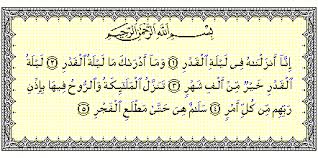 بِسْمِ ٱللَّهِ ٱلرَّحْمَٰنِ ٱلرَّحِيمِ
إِنَّآ أَنزَلْنَٰهُ فِى لَيْلَةِ ٱلْقَدْرِ ١ وَمَآ أَدْرَىٰكَ مَا لَيْلَةُ ٱلْقَدْرِ ٢ لَيْلَةُ
ٱلْقَدْرِ خَيْرٌ مِّنْ أَلْفِ شَهْرٍ ٣ تَنَزَّلُ ٱلْمَلَٰٓئِكَةُ وَٱلرُّوحُ فِيهَا بِإِذْنِ
رَبِّهِم مِّن كُلِّ أَمْرٍ ٤ سَلَٰمٌ هِىَ حَتَّىٰ مَطْلَعِ ٱلْفَجْرِ ٥